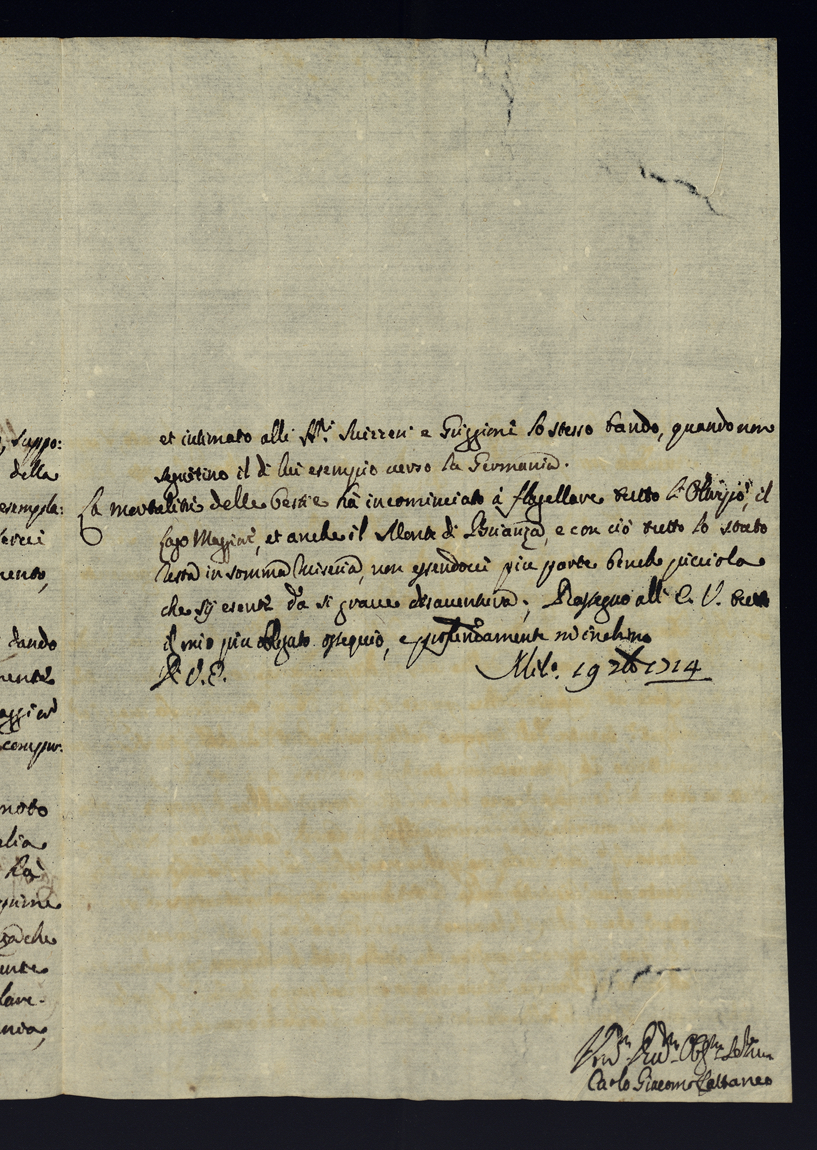 suppo:
della
esempla:
mento,
dando
mente
noto
che
et intimato alli SS.ri Suizzeri e Griggioni lo stesso bando, quando non
seguitino il di lui esempio verso la Germania.
La mortalità delle bestie hà incominciato à flagellare tutto l'Oltrepò, il
Lago Maggior, et anche il Monte di Brianza, e con ciò tutto lo stato
resta in somma miseria, non essendoci più parte benche picciola
che sij esente da si grave disauentura; Rassegno all' E. V. tutto
il mio più obligato ossequio, e profondamente m'inchino
D. V. E. Mil.o 19 7bre 1714
Carlo Giacomo Cattaneo